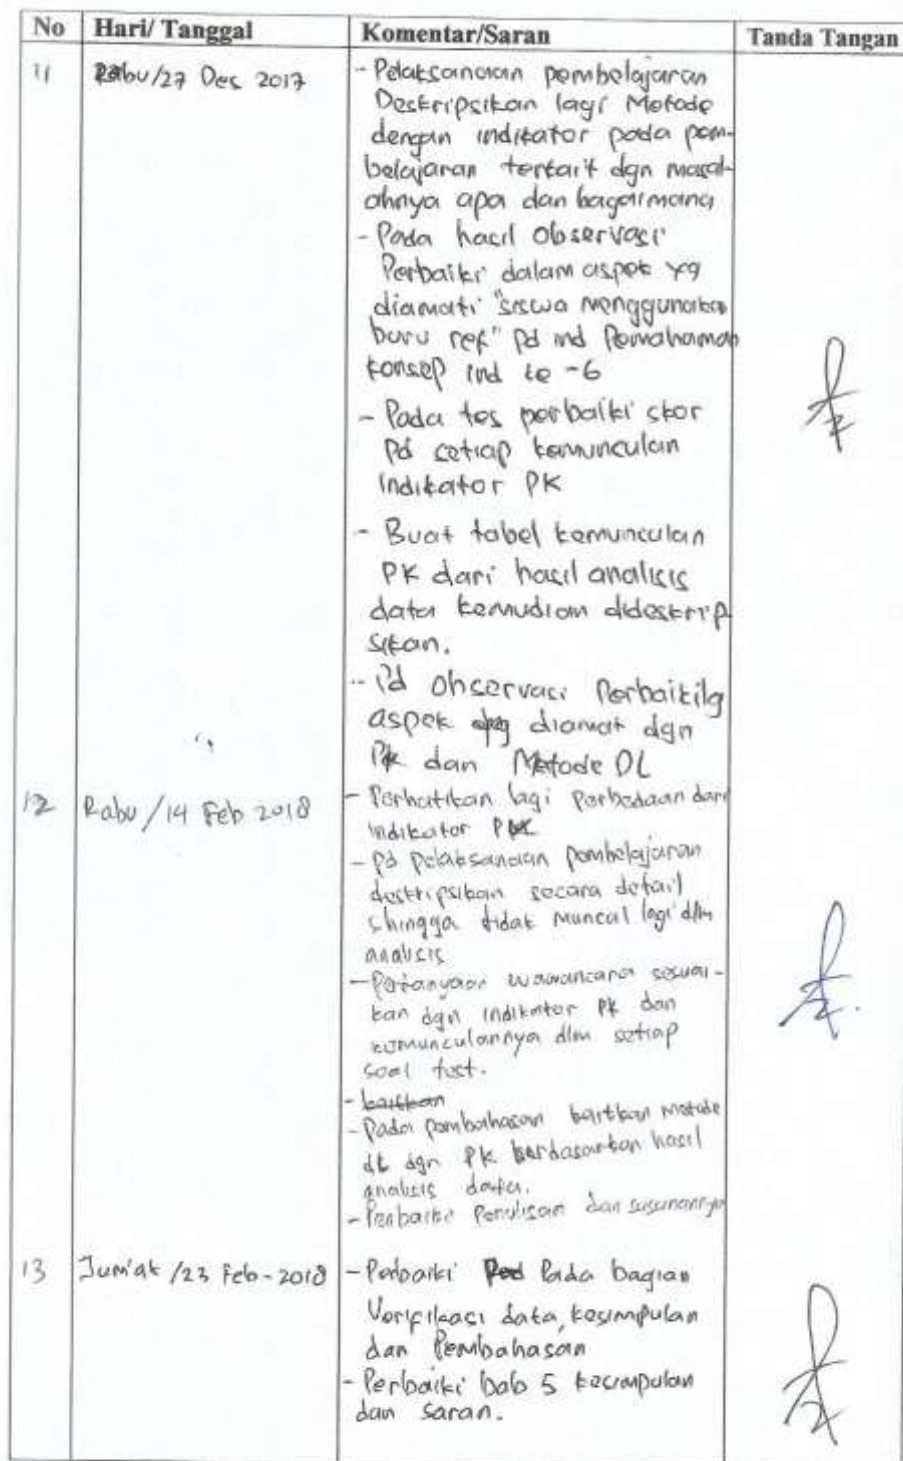 No Hari/ Tanggal Komentar/Saran Tanda Tangan
11 Rabu/27 Des 2017 - Pelaksanaan pembelajaran
Deskripsikan lagi Metode
dengan indikator pada pem-
belajaran terkait dgn masal-
ahnya apa dan bagaimana
- Pada hasil Observasi
Perbaiki dalam aspek yg
diamati "siswa menggunakan
buku ref" Pd ind Pemahaman
konsep ind ke -6
- Pada tes perbaiki skor
Pd setiap kemunculan
Indikator PK
- Buat tabel kemunculan
PK dari hasil analisis
data kemudian dideskrip
sikan.
- Pd observasi Perbaiki lg
aspek yg diamat dgn
PK dan Metode DL
12 Rabu /14 Feb 2018 - Perhatikan lagi Perbedaan dari
indikator PK
- pd pelaksanaan pembelajaran
deskripsikan secara detail
shingga tidak muncul lagi dlm
analisis
- Pertanyaan wawancara sesuai-
kan dgn indikator PK dan
kemunculannya dlm setiap
soal test.
- kaitkan
- Pada pembahasan kaitkan metode
dL dgn PK berdasarkan hasil
analisis data.
- Perbaiki Penulisan dan susunannya
13 Jum'at /23 Feb-2018 - Perbaiki Pada bagian
Verifikasi data, kesimpulan
dan Pembahasan
- Perbaiki bab 5 kesimpulan
dan saran.